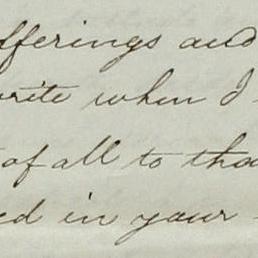 fferings and
write when I
of all to tha
ed in your